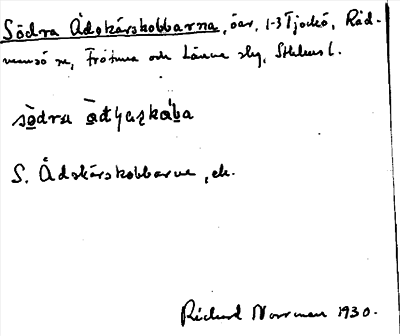 Södra Ådskärskobbarna, öar, 1-3 Tjockö, Råd-
mansö sn, Frötuna och Länna skg, Sthlms l.
södra
S. Ådskärskobbarne, ek.
Rickard Norrman 1930.